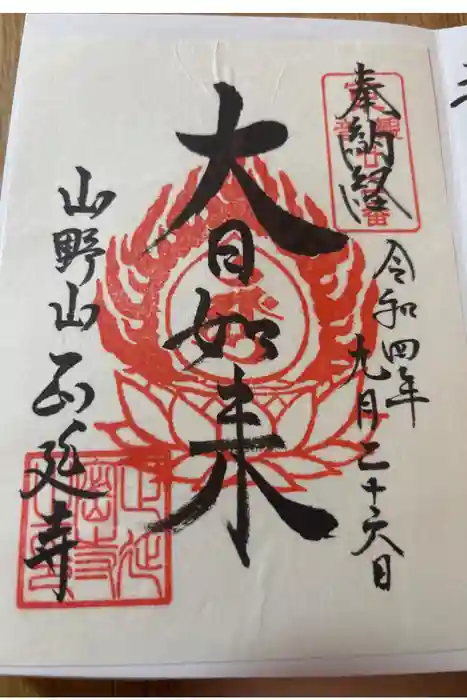 奉納経
令和四年
九月二十六日
大日如来
山野山 正延寺